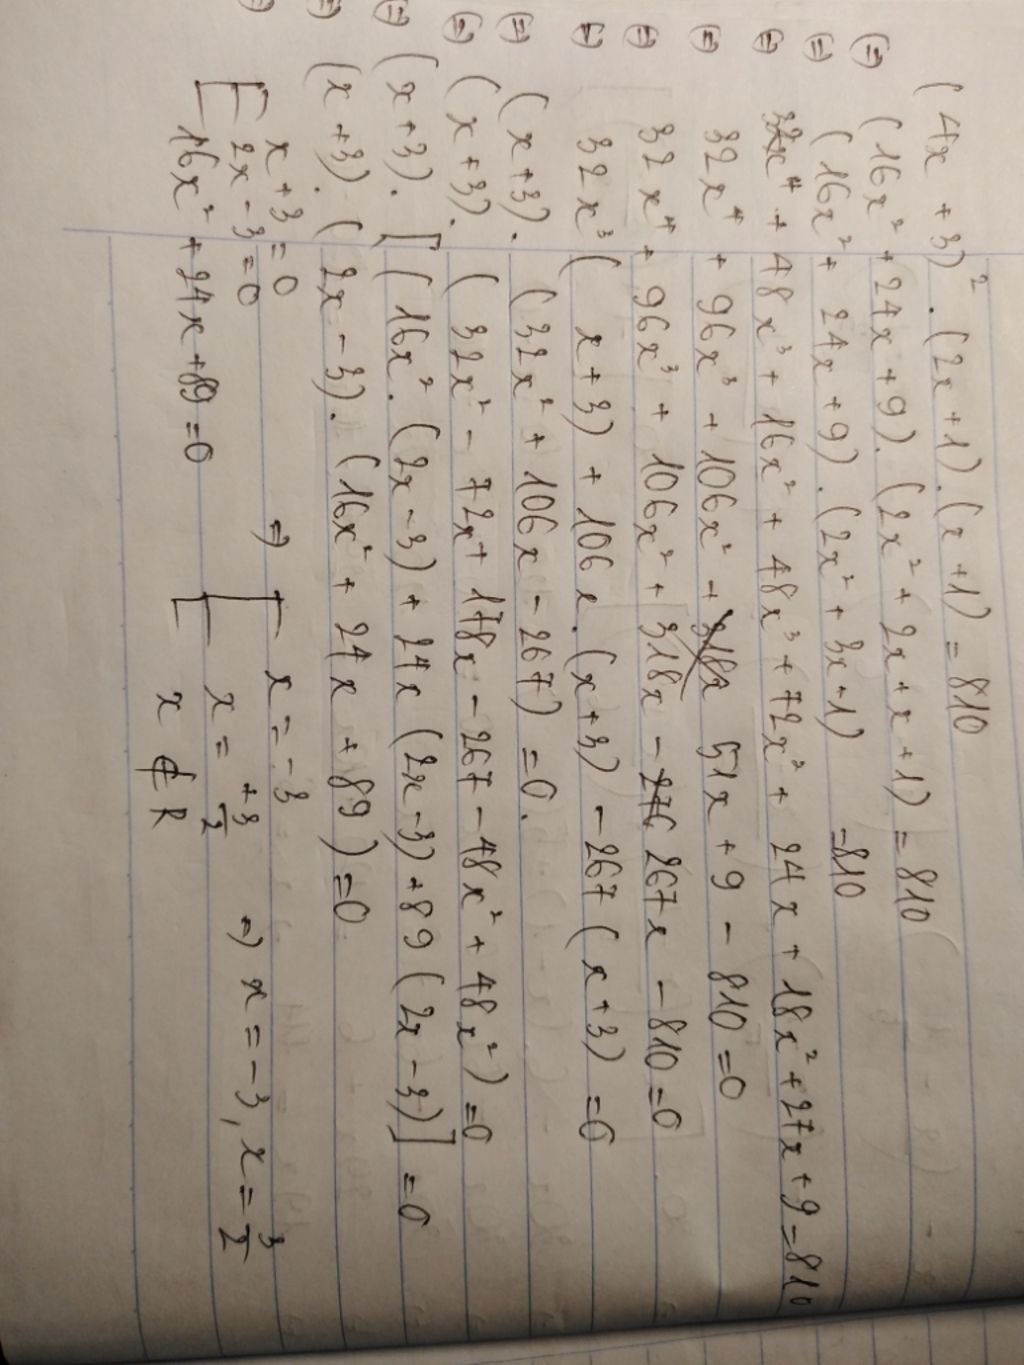 (4x + 3)² . (2x+1).(x+1) = 810
(=) (16x² + 24x + 9). (2x² + 2x + x + 1) = 810
(=) (16x² + 24x + 9) . (2x² + 3x + 1) = 810
(=) 32x⁴ + 48x³ + 16x² + 48x³ + 72x² + 24x + 18x² + 27x + 9 = 810
(=) 32x⁴ + 96x³ + 106x² + 51x + 9 - 810 = 0
(=) 32x⁴ + 96x³ + 106x² + 318x - 267x - 810 = 0
(=) 32x³ (x+3) + 106x . (x+3) - 267 (x+3) = 0
(=) (x+3). (32x² + 106x - 267) = 0.
(=) (x+3). (32x² - 72x + 178x - 267 - 48x² + 48x²) = 0
(=) (x+3). [(16x². (2x-3) + 24x (2x-3) + 89 (2x-3)] = 0
(=) (x+3). (2x-3). (16x² + 24x + 89) = 0
(=) [ x + 3 = 0 => [ x = -3
2x - 3 = 0 x = +3/2 => x = -3, x = 3/2
16x² + 24x + 89 = 0 x ∉ R